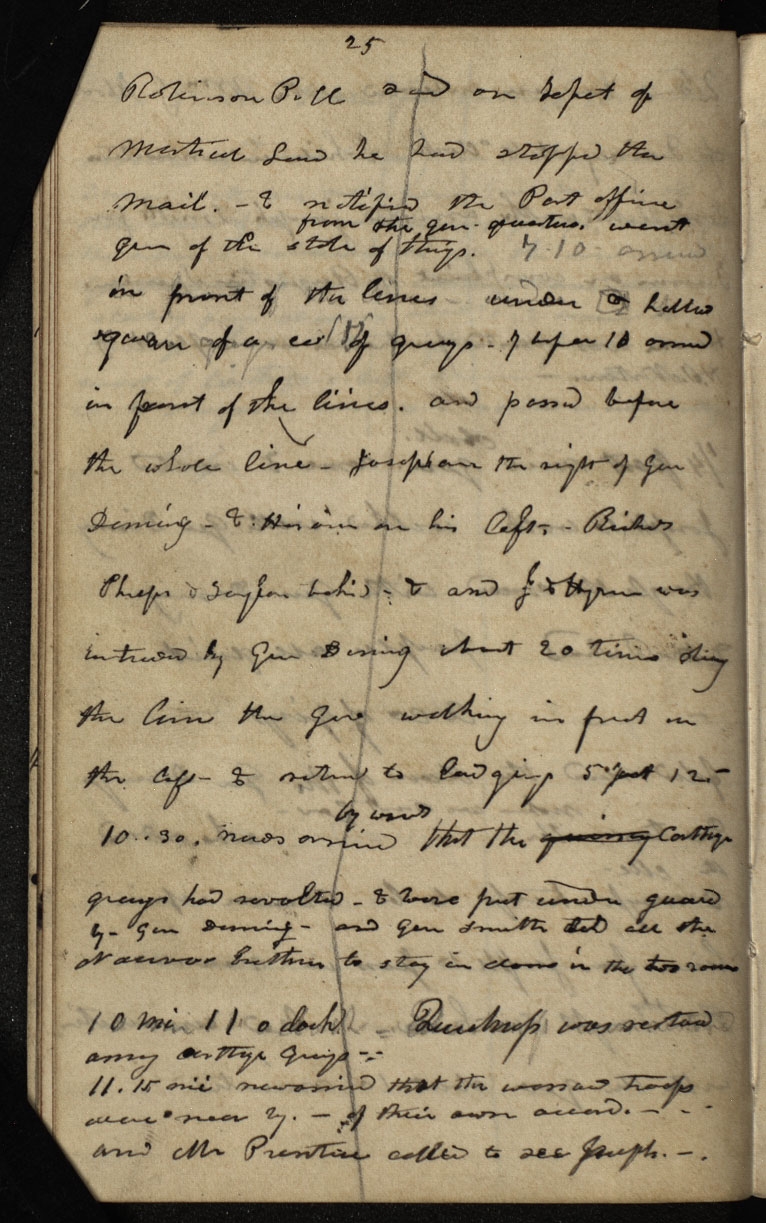 25
Robinson P.M. said on
he had stopped the
mail. - & notified the Post office
from the gen. quarters. went
gen of the state of things. 7.10 arrived
in front of the lines under a hollow
square of a co of greys - 7 before 10 arrived
in front of the lines. and passed before
the whole line - Joseph on the right of Gen
Deming - & Hiram on his left, - Richards
Phelps & Taylor behind - & and J & Hyrum was
introduced by Gen Deming about 20 times along
the line the Gove walking in front on
the left - & returned to lodgings 5 past 12
by word
10..30. news arrived that the Carthage
greys had revolted - & were put under guard
by Gen Deming - and Gen Smith told all the
Nauvoo brethren to stay in doors in the room
10 min 11 o clock - Quietness was restored
among Carthage Greys -
11.15 min news arrived that the warsaw troops
were near by. - of their own accord. - - -
and Mr Prentice called to see Joseph. - .